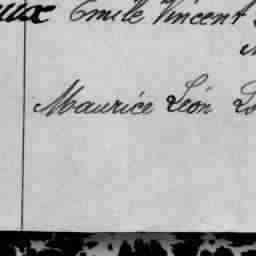 Emile Vincent
Maurice Léon